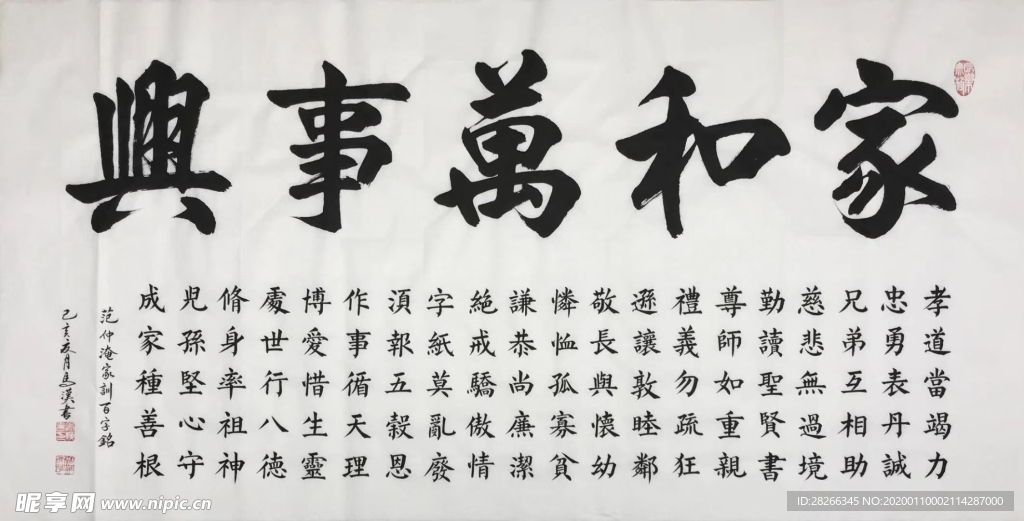 家和萬事興
孝道當竭力
忠勇表丹誠
兄弟互相助
慈悲無過境
勤讀聖賢書
尊師如重親
禮義勿疏狂
遜讓敦睦鄰
敬長與懷幼
憐恤孤寡貧
謙恭尚廉潔
絕戒驕傲情
字紙莫亂廢
須報五穀恩
作事循天理
博愛惜生靈
處世行八德
脩身率祖神
児孫堅心守
成家種善根
范仲淹家訓百字銘
昵享网 www.nipic.cn
ID:28266345 NO:20200110002114287000